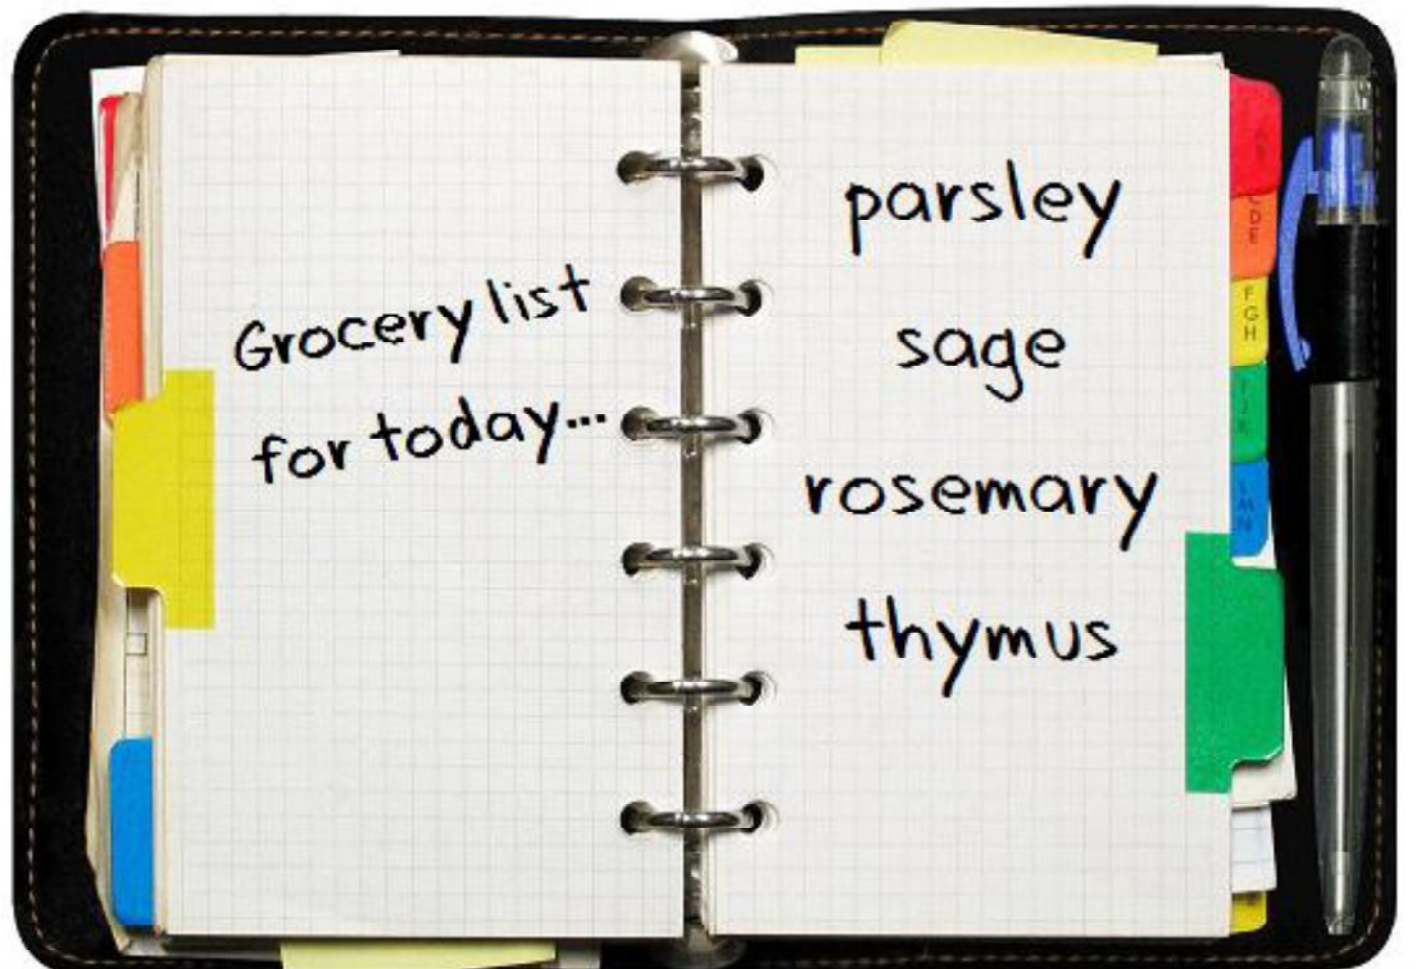 Grocery list
for today...
parsley
sage
rosemary
thymus
C
D
E
F
G
H
I
J
K
L
M
N